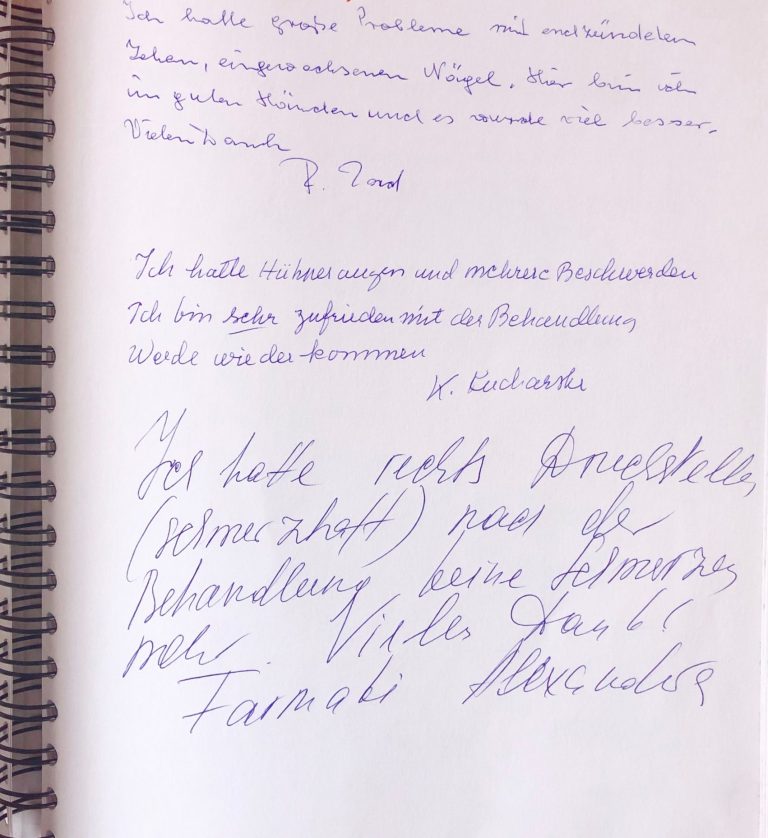 Ich hatte große Probleme mit endzündeten
Zehen, eingewachsenen Nägel. Hier bin ich
in guten Händen und es wurde viel besser.
Vielen Dank
Ich hatte Hühneraugen und mehrere Beschwerden
Ich bin sehr zufrieden mit der Behandlung
Werde wieder kommen
K. Kucharski
Ich hatte rechts Druckstellen
(schmerzhaft) nach der
Behandlung keine Schmerzen
mehr. Vielen Dank!
Farmaki Alexandra